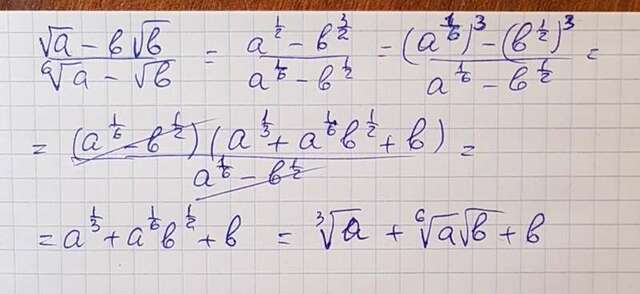 (√a − b√b)/(⁶√a − √b) = (a^(1/2) − b^(3/2))/(a^(1/6) − b^(1/2)) = ((a^(1/6))^3 − (b^(1/2))^3)/(a^(1/6) − b^(1/2)) =
= ((a^(1/6) − b^(1/2))(a^(1/3) + a^(1/6)b^(1/2) + b))/(a^(1/6) − b^(1/2)) =
= a^(1/3) + a^(1/6)b^(1/2) + b = ³√a + ⁶√a√b + b